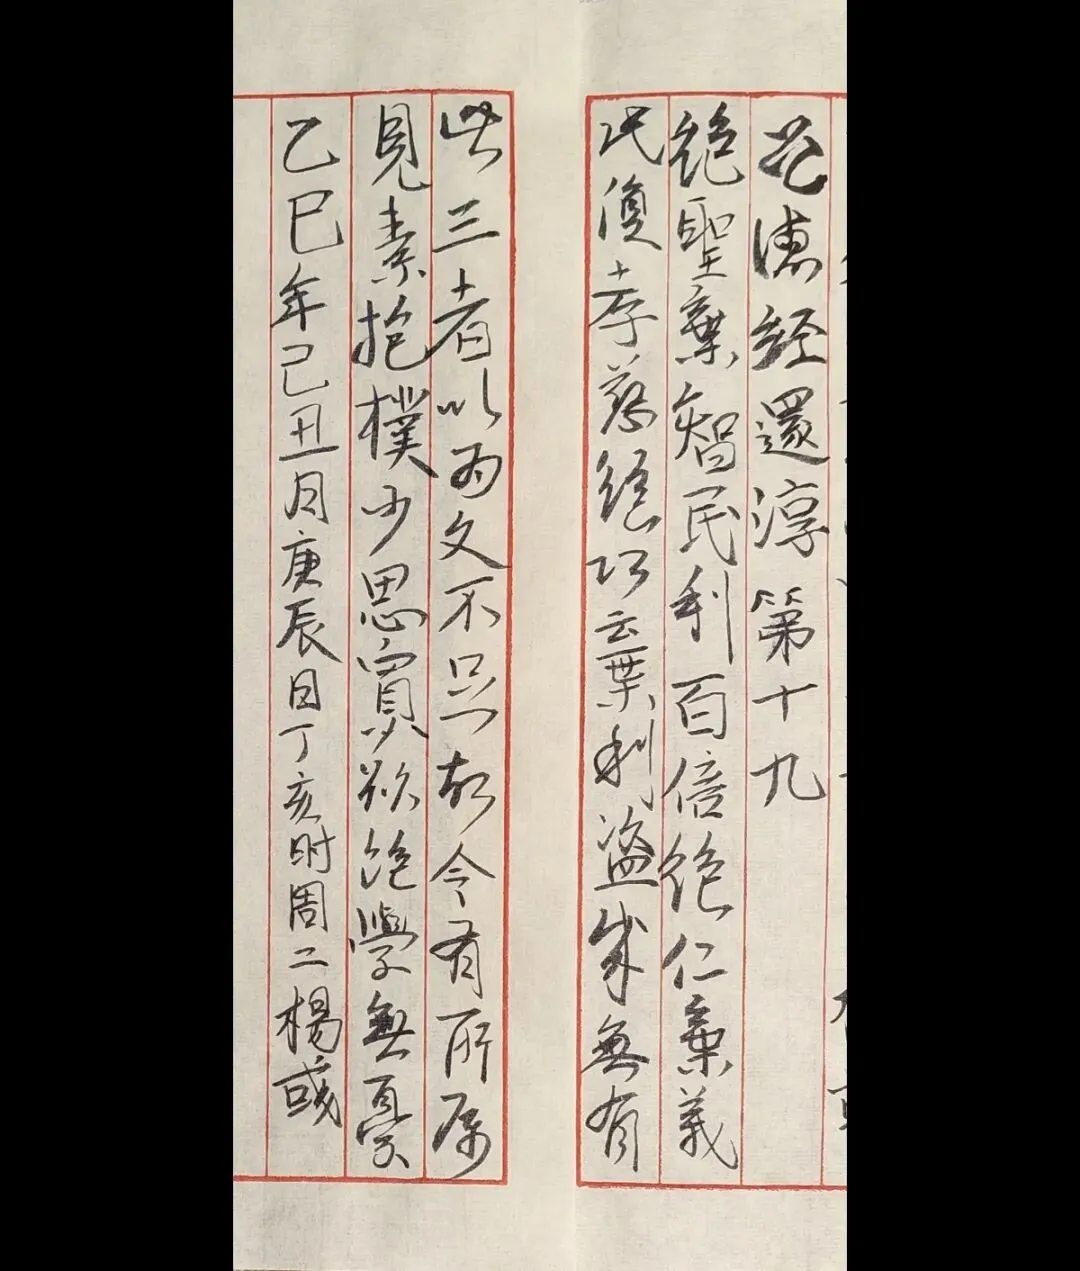 道德經還淳第十九
絕聖棄智民利百倍絕仁棄義
民復孝慈絕巧棄利盜賊無有
此三者以為文不足故令有所屬
見素抱樸少思寡欲絕學無憂
乙巳年己丑月庚辰日丁亥时周二楊彧